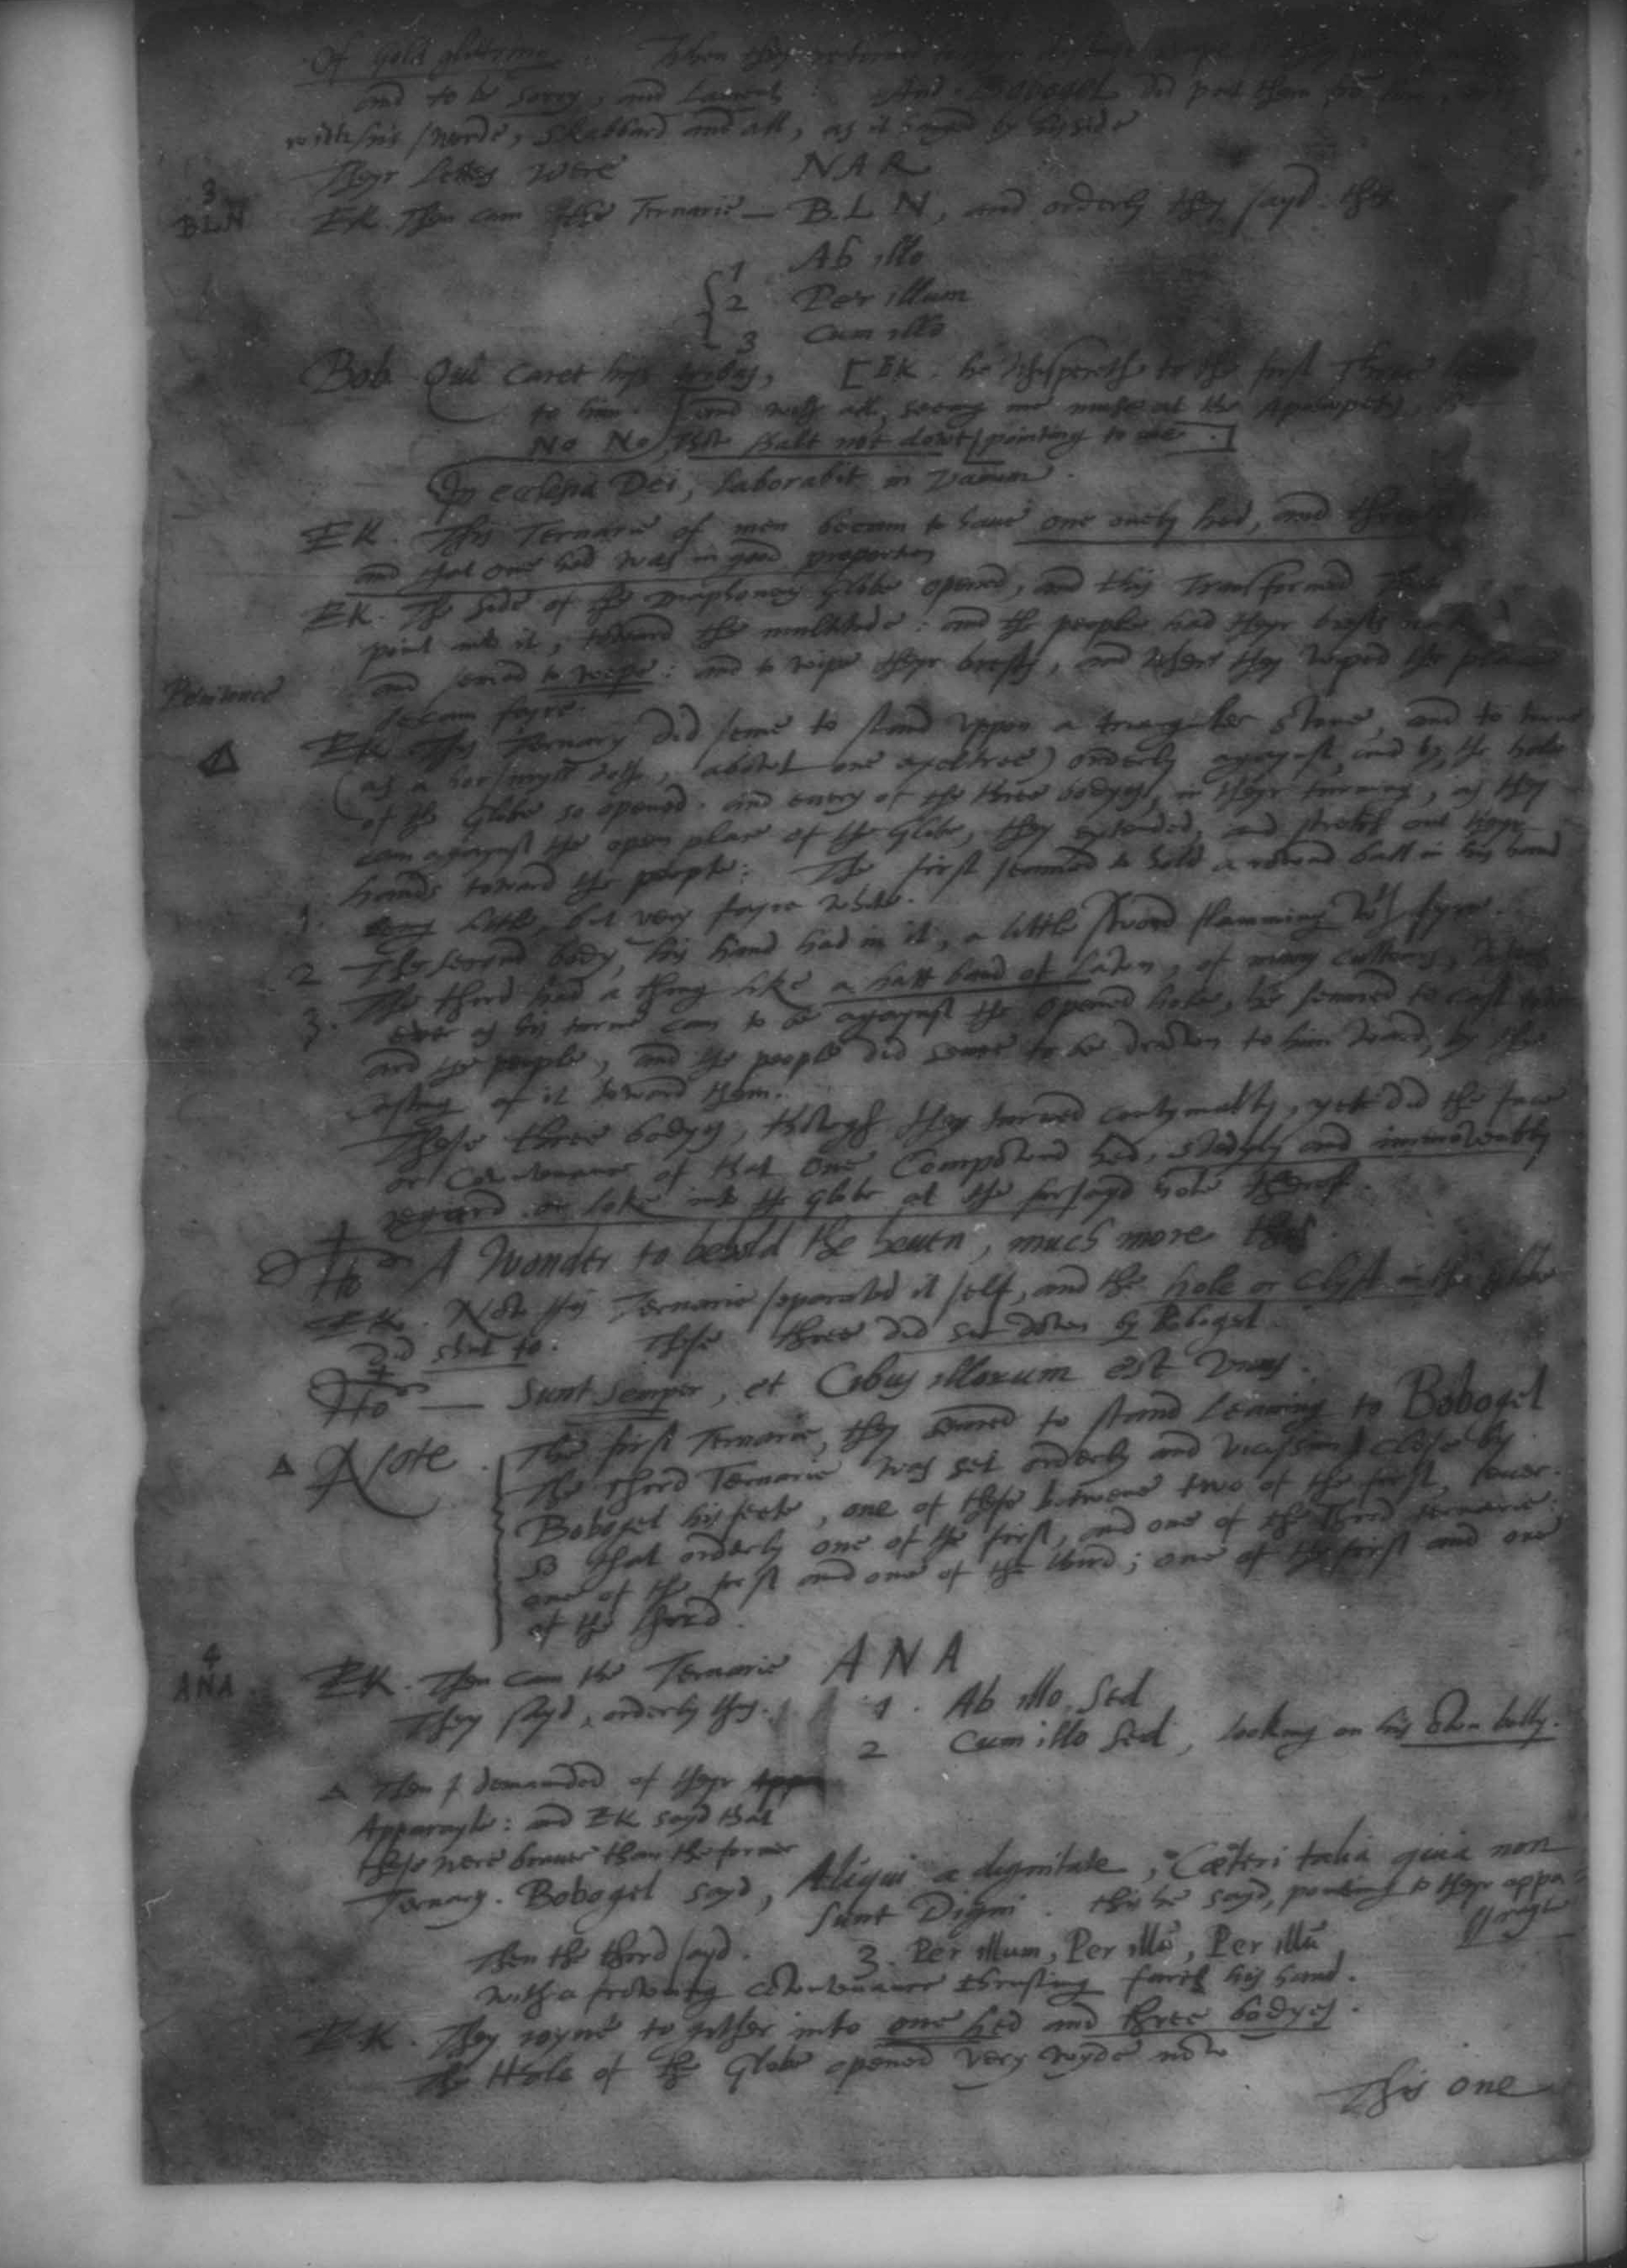 Of gold glittering. Then they
and to be sorry, and Lament: And Bobogel did put them
with his sworde, skabbard and all, as it hanged by his side
Theyr letters were NAR
3
BLN
EK. Then cam the Ternarie — B L N, and orderly they sayd. thus
1 Ab illo
2 Per illum
3 Cum illo
Bob. Qui caret his tribus, [EK. he whispereth to the first Three
to him. and with all, seeing me muse at the Aposiopesis,
No No, Thow shalt not dowt, pointing to me.]
In ecclesia Dei, Laborabit in vanum.
EK. This Ternarie of men becam to haue one onely hed, and three
and that one hed was in good proportion
EK. The side of the Diaphonous Globe opened, and this Transformed
point into it, toward the multitude: and the people had theyr brests
Penitence
and semed to wepe: and to wipe theyr brests, and where they wiped the place
becam fayre.
Δ
EK. This Ternary did seme to stand vppon a triangular stone, and to turne
(as a horsmyll doth, abowt one axeltree) orderly agaynst, and by, the hole
of the Globe so opened. and euery of the three bodyes, in theyr turning, as they
cam agaynst the open place of the Globe, they extended, and stretched out theyr
hands toward the people: The first semed to hold a rownd ball in his hand
1. being little, but very fayre white.
2 The second body, his hand had in it, a little sword flamming with fyre.
3. The third had a thing like a hatt band of Laten, of many cullours, which
euer as his turne cam to be agaynst the opened hole, he semed to cast
and the people, and the people did seme to be drawn to him ward, by the
casting of it toward them.
These three bodyes, though they turned contynually, yet did the face
or Cowntenance of that one Compownd hed, stedyly and immoveably
regard or loke into the globe at the forsayd hole therof.
Ho A Wonder to behold the heuen, much more this
EK. Now this Ternarie separated it self, and the hole or clyft in the globe
did shut to. These three did set down by Bobogel.
Ho — Sunt semper, et Cibus illorum est vnus.
Δ Note. The first Ternarie, they semed to stand Leaning to Bobogel
The third Ternarie was set orderly and vicissim, close by
Bobogel his feete, one of these betwene two of the first, seuer.
So that orderly one of the first, and one of the Third ternarie
one of the first and one of the third; one of the first and one
of the third.
4
ANA.
EK. Then cam the Ternarie A N A
They sayd, orderly thus. 1. Ab illo, Sed
2 Cum illo Sed, looking on his own belly.
Δ Then I demaunded of theyr
Apparayle: and EK sayd that
these were brauer than the former
Ternary. Bobogel sayd, Aliqui a dignitate, Cæteri talia quia non
sunt Digni. this he sayd, pointing to theyr appa=
rayle
Then the third sayd. 3. Per illum, Per illū, Per illū,
with a frowning cowntenance thrusting forth his hand.
EK. They joyne to gither into one hed and three bodyes.
The Hole of the Globe opened very wyde now
This one